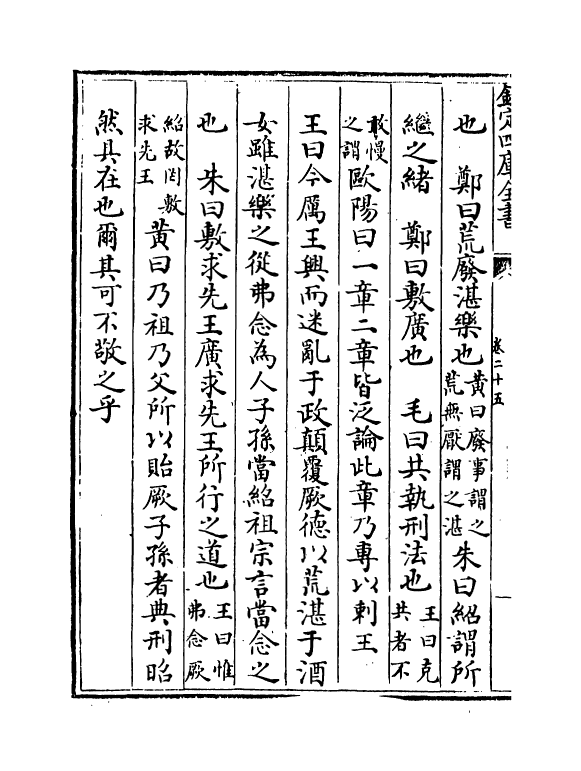 欽定四庫全書
卷二十五
也　鄭曰荒廢湛樂也黃曰廢事謂之荒無厭謂之湛朱曰紹謂所
繼之緒　鄭曰敷廣也　毛曰共執刑法也王曰克共者不
敢慢之謂歐陽曰一章二章皆泛論此章乃專以刺王
王曰今厲王興而迷亂于政顛覆厥徳以荒湛于酒
女雖湛樂之從弗念為人子孫當紹祖宗言當念之
也　朱曰敷求先王廣求先王所行之道也王曰惟弗念厥
紹故罔敷求先王黃曰乃祖乃父所以貽厥子孫者典刑昭
然具在也爾其可不敬之乎